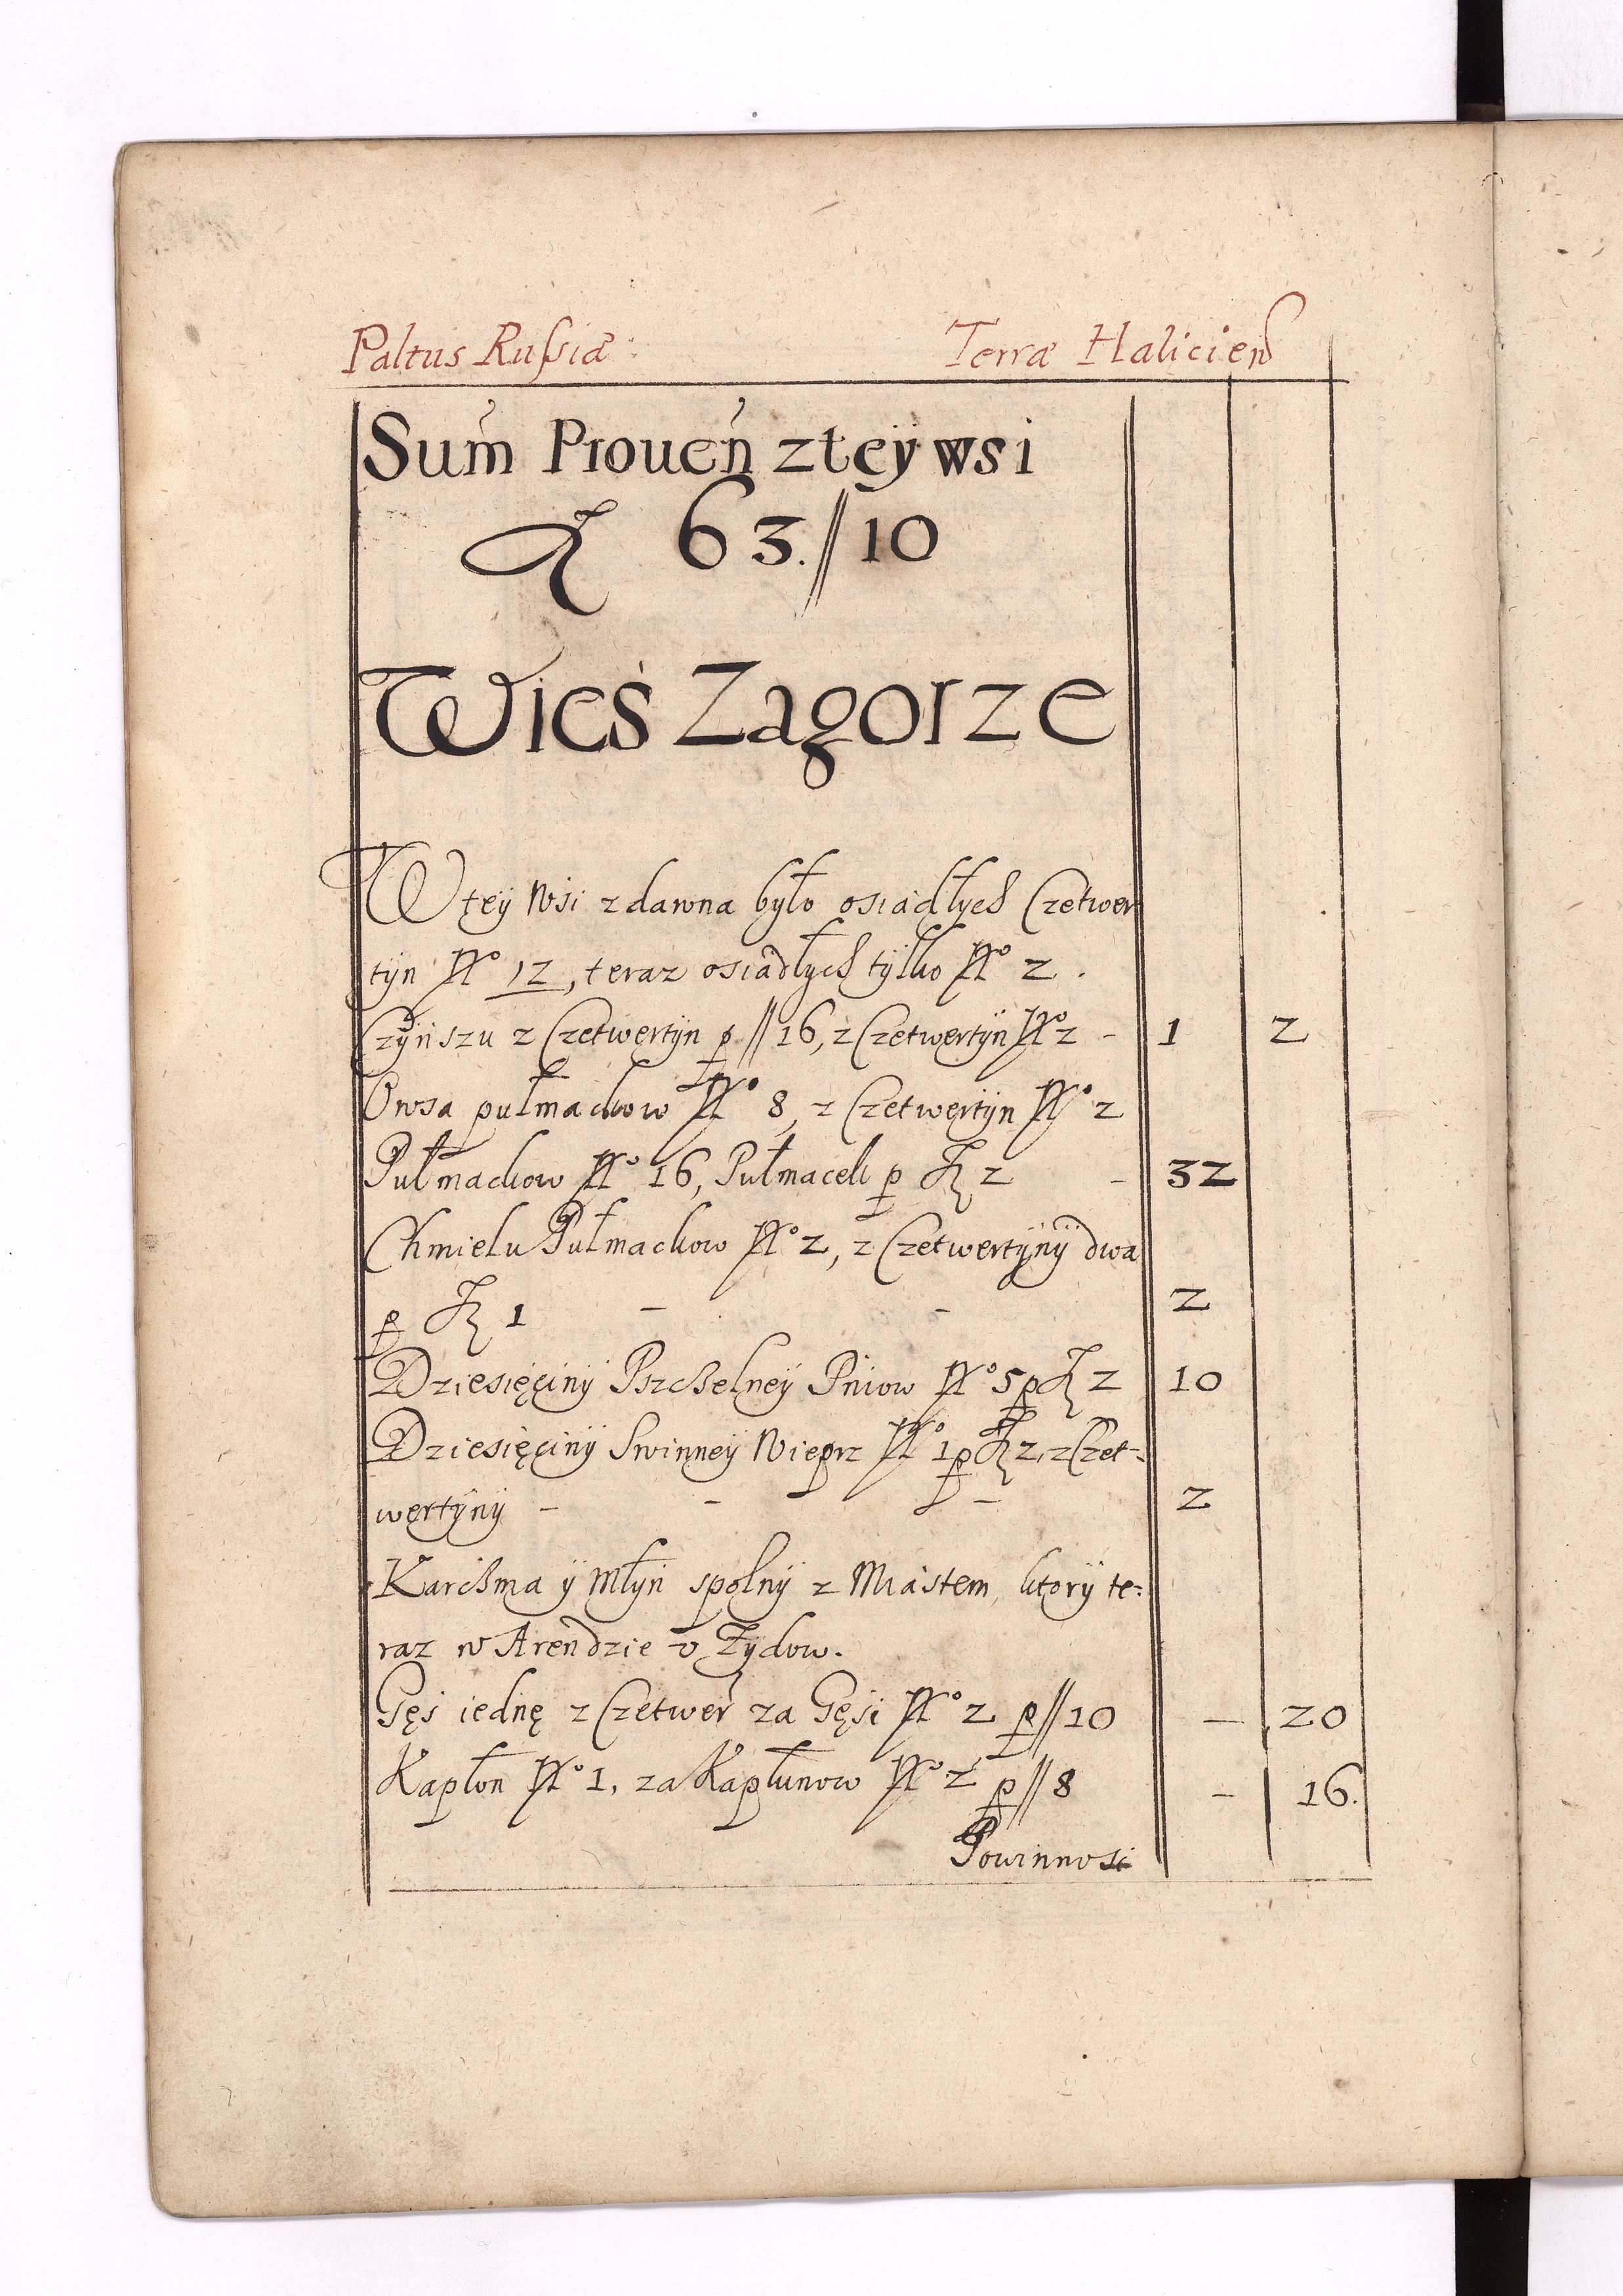 Paltus Russiæ Terræ Halicien
Sum̃ Prouen̉ z teÿ wsi
fl 63.//10
Wieś Zagorze
W teÿ Wsi z dawna było osiadłych Czetwer
tÿn No 12, teraz osiadłych tÿlko No 2.
Czÿnszu z Czetwertÿn p //16, z Czetwertÿn No 2 - 1 2
Owsa pułmackow No 8, z Czetwertÿn No 2
Pułmackow No 16, Pułmacek p fl 2 - 32
Chmielu Pułmackow No 2, z Czetwertÿnÿ dwa
p fl 1 - - 2
Dziesięcinÿ Pszczelneÿ Pniow No 5 p fl 2 10
Dziesięcinÿ Swinneÿ Wieprz No 1 p fl 2, z Czet-
wertÿnÿ - - - 2
Karczma ÿ Młÿn spolnÿ z Miastem, ktorÿ te-
raz w Arendzie v Żÿdow.
Gęś iednę z Czetwer za Gęsi No 2 p //10 - 20
Kapłon No 1, za Kapłunow No 2 p //8 - 16.
Powinnosc